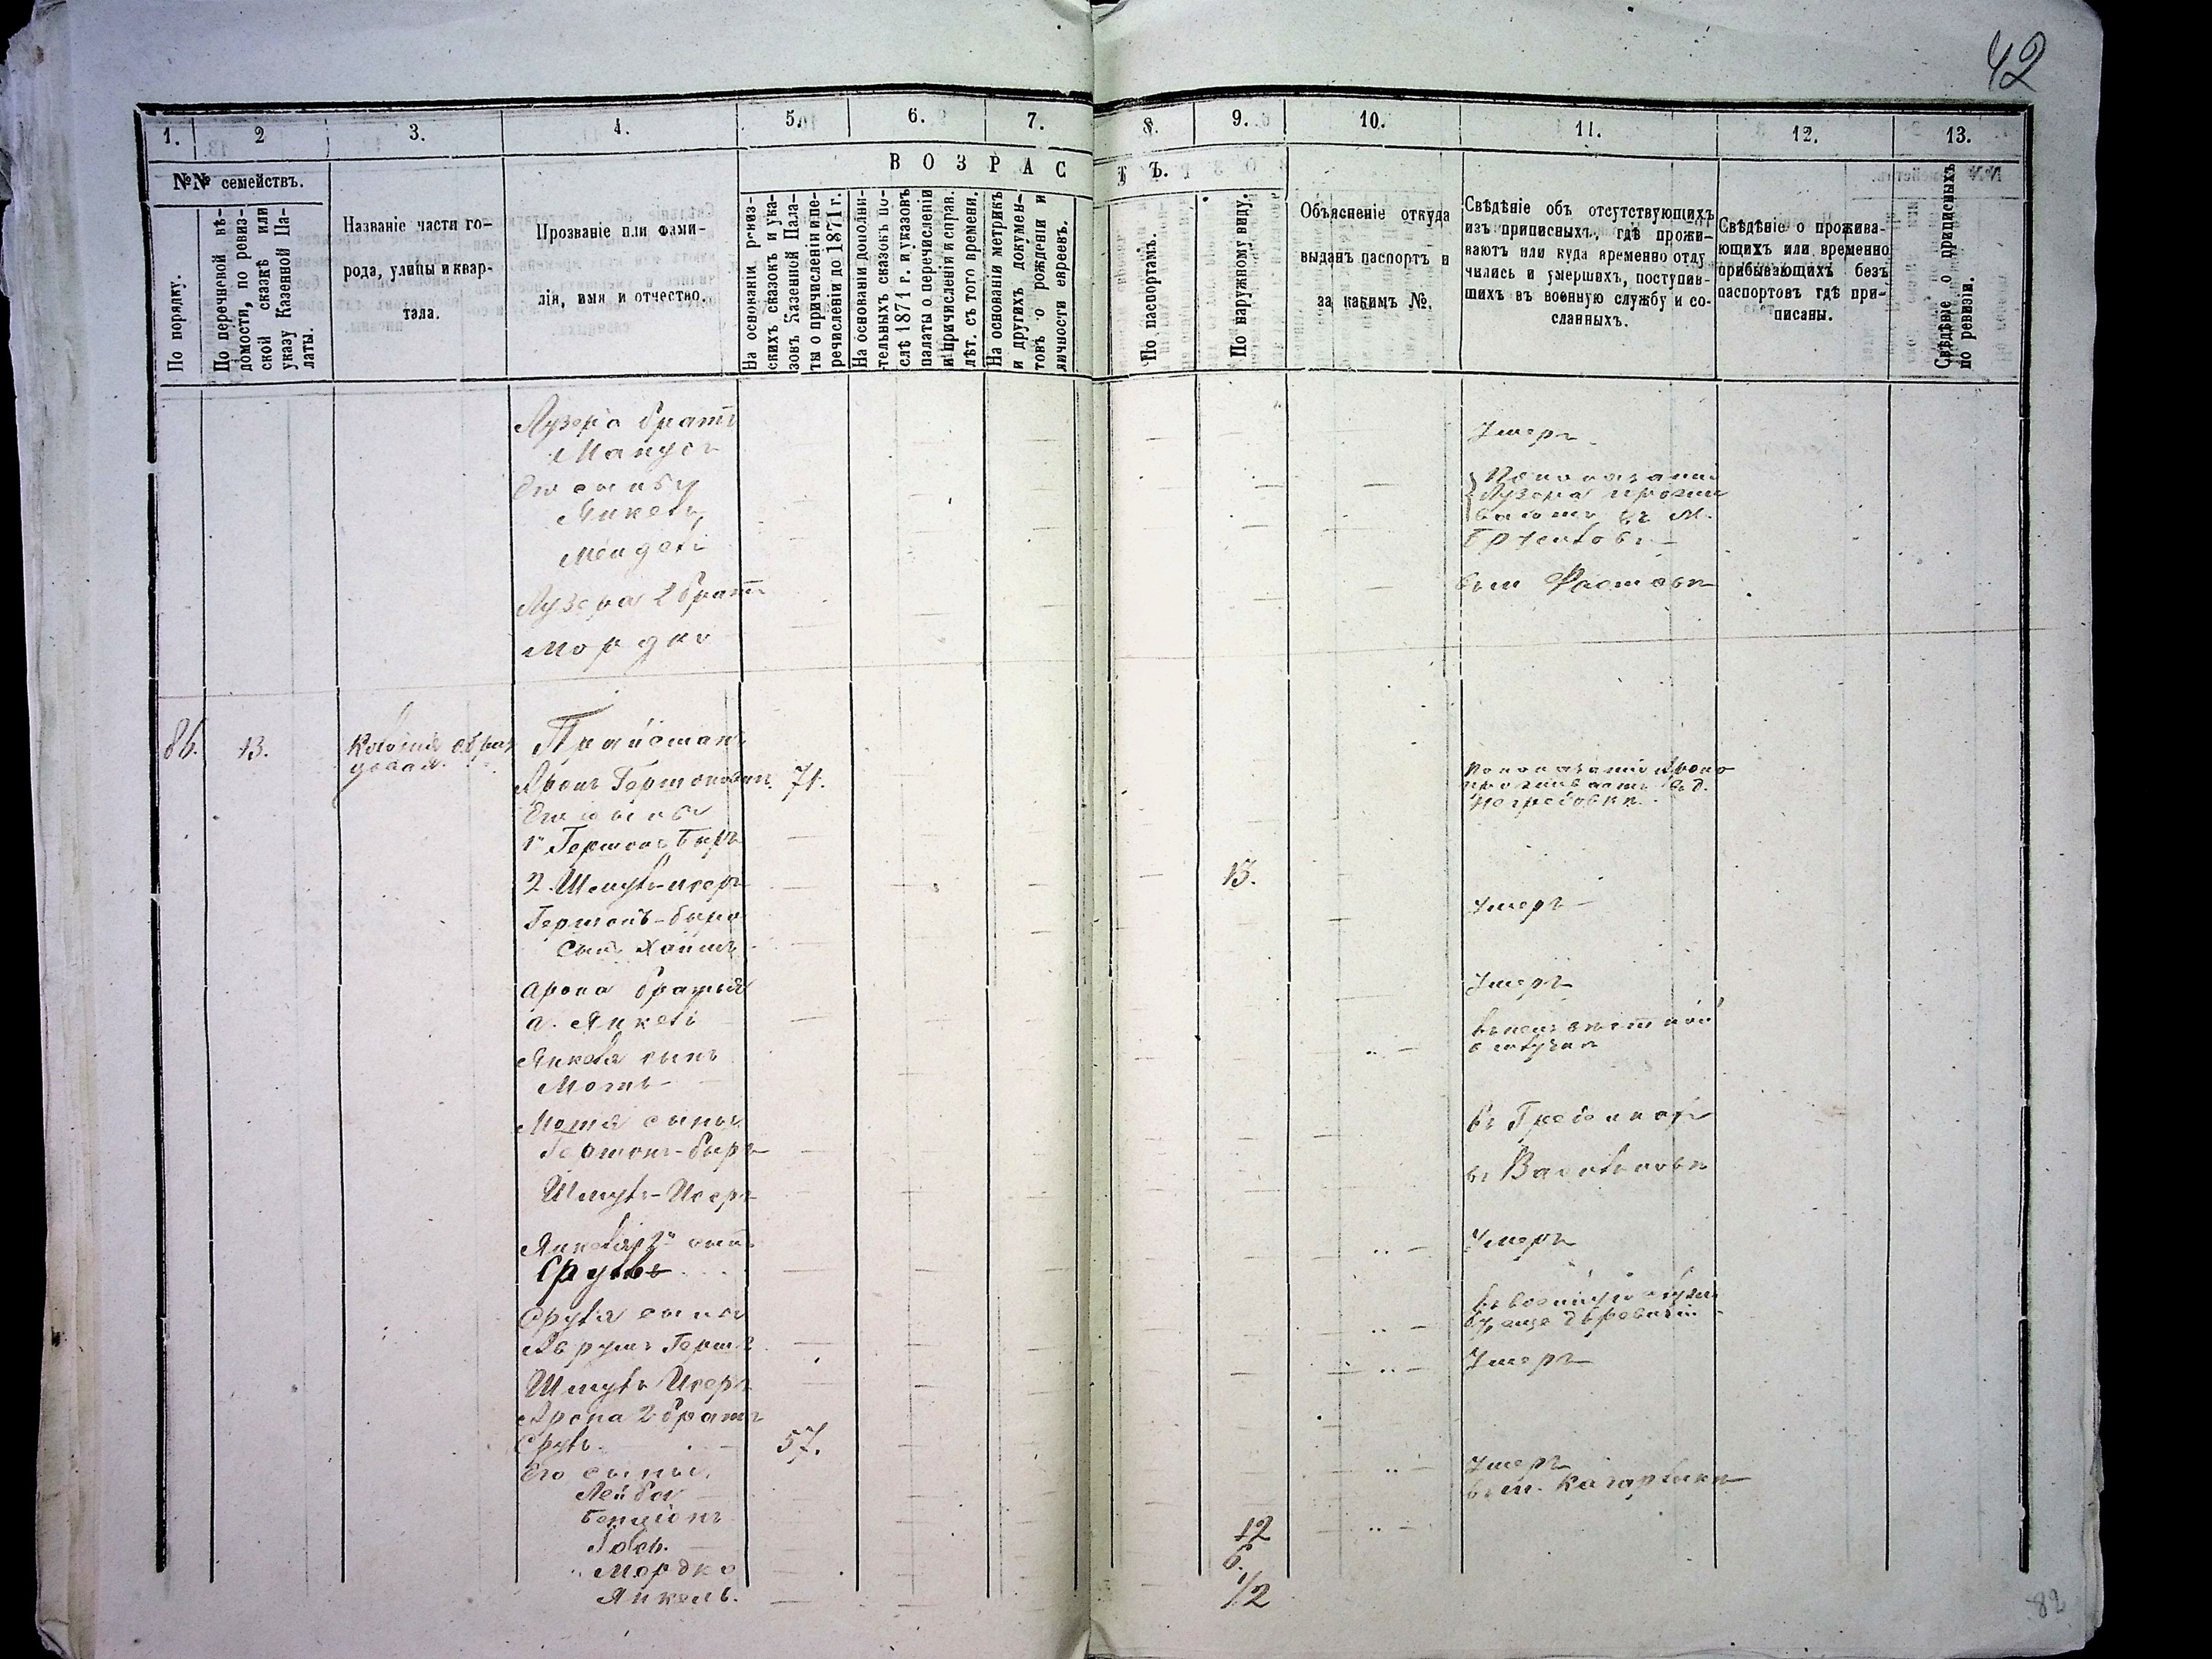 42
1. 2 3. 4. 5. 6. 7. 8. 9. 10. 11. 12. 13.
№№ семействъ.
В О З Р А С Т Ъ.
По порядку.
По перечневой вѣ-
домости, по ревиз-
ской сказкѣ или
указу Казенной Па-
латы.
Названіе части го-
рода, улицы и квар-
тала.
Прозваніе или фами-
лія, имя и отчество.
На основаніи ревиз-
скихъ сказокъ и ука-
зовъ Казенной Пала-
ты о причисленіи и пе-
речисленіи до 1871 г.
На основаніи дополни-
тельныхъ сказокъ по-
слѣ 1871 г. и указовъ
палаты о перечисленіи
и причисленіи и справ.
лѣт. съ того времени.
На основаніи метрикъ
и другихъ докумен-
товъ о рожденіи и
личности евреевъ.
По паспортамъ.
По наружному виду.
Объясненіе откуда
выданъ паспортъ и
за какимъ №.
Свѣдѣніе объ отсутствующихъ
изъ приписныхъ, гдѣ прожи-
ваютъ или куда временно отлу
чились и умершихъ, поступив-
шихъ въ военную службу и со-
сланныхъ.
Свѣдѣніе о прожива-
ющихъ или временно
прибывающихъ безъ
паспортовъ гдѣ при-
писаны.
Свѣдѣніе о приписныхъ
по ревизіи.
Лузера братъ
Манусъ
Умеръ
Его сыновья
Янкель
Мендель
По показанію
Лузера прожи
ваютъ въ м.
Лузера 2 братъ
Мордко
86. 13.
Аронъ Гершоновичъ 71.
По показанію Арона
проживаетъ въ д.
Его сынъ
1й Гершонъ Беръ
2. Шмуль-Исеръ 13.
Гершонъ-Бера
сынъ Хаимъ
Умеръ
Арона братья
а. Янкель
Умеръ
Янкеля сынъ
Мотъ
въ неизвѣстной
отлучкѣ
Мотя сынъ
Гершонъ-Беръ
Шмуль-Исеръ
въ Василькове
Янкеля 2й сынъ
Сруль
Умеръ
Сруля сына
Аврумъ Гершъ
Шмуль Исеръ
Умеръ
Арона 2 братъ
Сруль 57.
Его сыны
Умеръ
Лейба
въ м. Кагарлыке
Бенціонъ
12
6.
Мордко
Янкель.
1/2
82